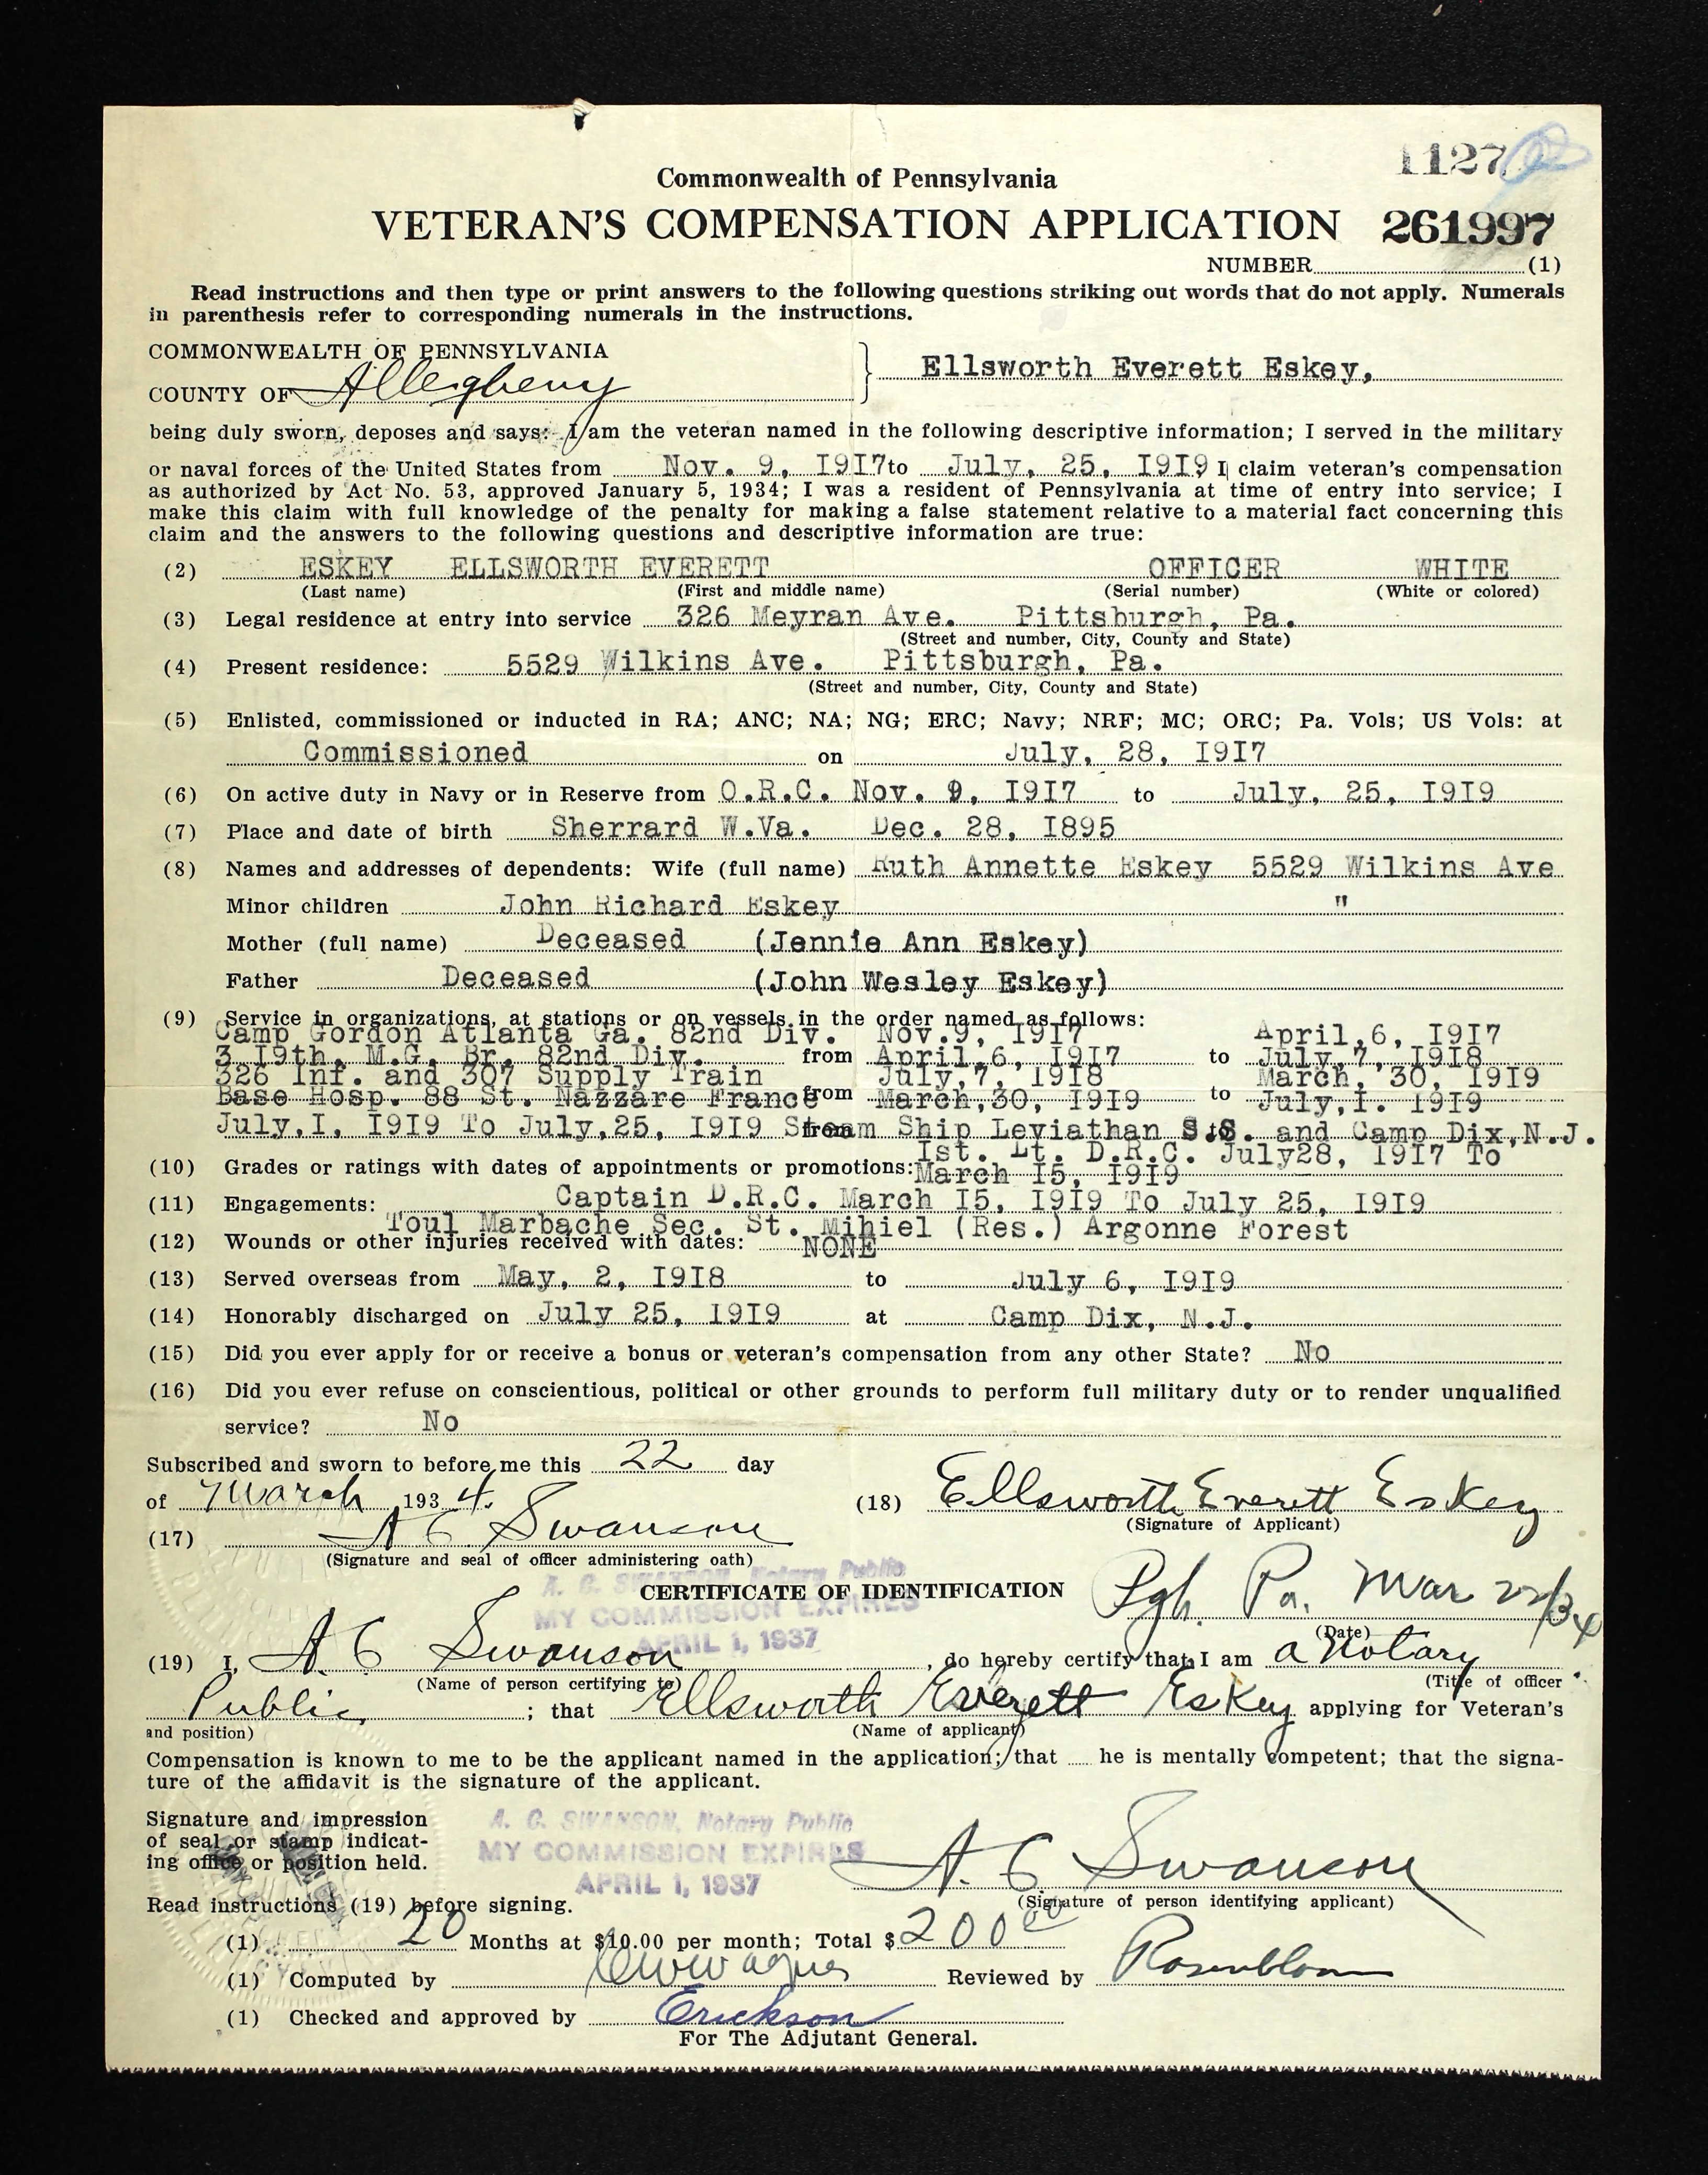 1127
Commonwealth of Pennsylvania
VETERAN'S COMPENSATION APPLICATION 261997
NUMBER (1)
Read instructions and then type or print answers to the following questions striking out words that do not apply. Numerals
in parenthesis refer to corresponding numerals in the instructions.
COMMONWEALTH OF PENNSYLVANIA
Ellsworth Everett Eskey,
COUNTY OF Allegheny
being duly sworn, deposes and says: I am the veteran named in the following descriptive information; I served in the military
or naval forces of the United States from Nov. 9, I9I7 to July, 25, I9I9 I claim veteran's compensation
as authorized by Act No. 53, approved January 5, 1934; I was a resident of Pennsylvania at time of entry into service; I
make this claim with full knowledge of the penalty for making a false statement relative to a material fact concerning this
claim and the answers to the following questions and descriptive information are true:
(2) ESKEY ELLSWORTH EVERETT OFFICER WHITE
(Last name) (First and middle name) (Serial number) (White or colored)
(3) Legal residence at entry into service 326 Meyran Ave. Pittsburgh, Pa.
(Street and number, City, County and State)
(4) Present residence: 5529 Wilkins Ave. Pittsburgh, Pa.
(Street and number, City, County and State)
(5) Enlisted, commissioned or inducted in RA; ANC; NA; NG; ERC; Navy; NRF; MC; ORC; Pa. Vols; US Vols: at
Commissioned on July, 28, I9I7
(6) On active duty in Navy or in Reserve from O.R.C. Nov. 9, I9I7 to July, 25, I9I9
(7) Place and date of birth Sherrard W.Va. Dec. 28, I895
(8) Names and addresses of dependents: Wife (full name) Ruth Annette Eskey 5529 Wilkins Ave
Minor children John Richard Eskey "
Mother (full name) Deceased (Jennie Ann Eskey)
Father Deceased (John Wesley Eskey)
(9) Service in organizations, at stations or on vessels in the order named as follows:
Camp Gordon Atlanta Ga. 82nd Div. Nov.9, I9I7 April,6, I9I7
3 I9th, M.G. Br. 82nd Div. from April,6, I9I7 to July,7, I9I8
326 Inf. and 307 Supply Train July,7, I9I8 March, 30, I9I9
Base Hosp. 88 St. Nazzare France from March,30, I9I9 to July,I. I9I9
July,I, I9I9 To July,25, I9I9 Steam Ship Leviathan S.S. and Camp Dix,N.J.
Ist. Lt. D.R.C. July28, I9I7 To
(10) Grades or ratings with dates of appointments or promotions: March I5, I9I9
(11) Engagements: Captain D.R.C. March I5, I9I9 To July 25, I9I9
Toul Marbache Sec. St. Mihiel (Res.) Argonne Forest
(12) Wounds or other injuries received with dates: NONE
(13) Served overseas from May, 2, I9I8 to July 6, I9I9
(14) Honorably discharged on July 25, I9I9 at Camp Dix, N.J.
(15) Did you ever apply for or receive a bonus or veteran's compensation from any other State? No
(16) Did you ever refuse on conscientious, political or other grounds to perform full military duty or to render unqualified
service? No
Subscribed and sworn to before me this 22 day
of March 1934.
(18) Ellsworth Everett Eskey
(Signature of Applicant)
(17) A C Swanson
(Signature and seal of officer administering oath)
A. C. SWANSON, Notary Public
MY COMMISSION EXPIRES
APRIL 1, 1937
CERTIFICATE OF IDENTIFICATION
Pgh. Pa. Mar 22/34
(Date)
(19) I, A. C Swanson, do hereby certify that I am a Notary
(Name of person certifying to) (Title of officer
Public; that Ellsworth Everett Eskey applying for Veteran's
and position) (Name of applicant)
Compensation is known to me to be the applicant named in the application; that he is mentally competent; that the signa-
ture of the affidavit is the signature of the applicant.
Signature and impression
of seal or stamp indicat-
ing office or position held.
A. C. SWANSON, Notary Public
MY COMMISSION EXPIRES
APRIL 1, 1937
A. C Swanson
(Signature of person identifying applicant)
Read instructions (19) before signing.
(1) 20 Months at $10.00 per month; Total $ 200 00
(1) Computed by Reviewed by Rosenbloom
(1) Checked and approved by Erickson
For The Adjutant General.